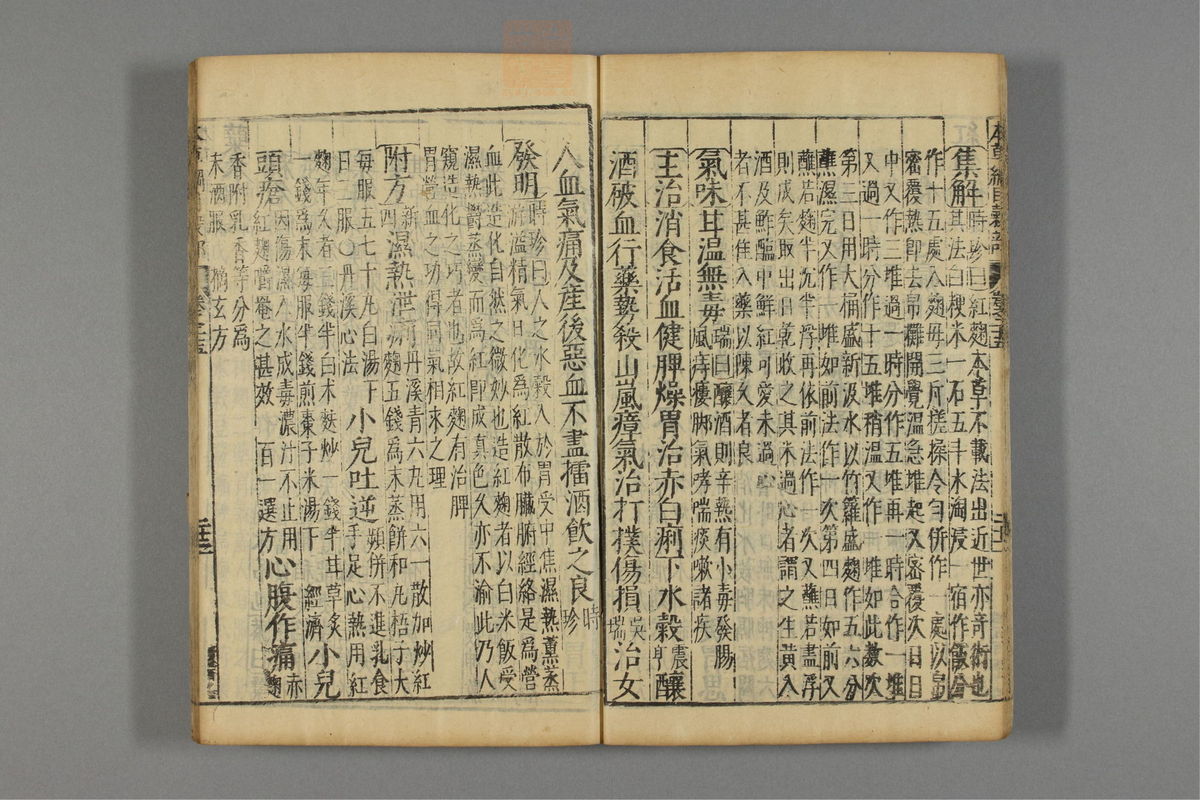 集解時珍曰紅麴本草不載法出近世亦奇術也
其法白梗米一石五斗水淘浸一宿作飯分
作十五處入麴母三斤搓揉令勻併作一處以帛
密覆熱即去帛攤開覺溫急堆起又密覆次日日
中又作三堆過一時分作五堆再一時合作一堆
又過一時分作十五堆稍溫又作一堆如此數次
第三日用大桶盛新汲水以竹籮盛麴作五六分
蘸濕完又作一堆如前法作一次第四日如前又
蘸若麴半沉半浮再依前法作一次又蘸若盡浮
則成矣取出日乾收之其米過心者謂之生黃入
酒及鮓醢中鮮紅可愛未過心
者不甚佳入藥以陳久者良
氣味甘溫無毒瑞曰釀酒則辛熱有小毒發腸
風痔瘻脚氣哮喘痰嗽諸疾
主治消食活血健脾燥胃治赤白痢下水穀震亨釀
酒破血行藥勢殺山嵐瘴氣治打撲傷損吳瑞治女
人血氣痛及産後惡血不盡擂酒飲之良時珍
發明時珍曰人之水穀入於胃受中焦濕熱薰蒸
游溢精氣日化爲紅散布臟腑經絡是爲營
血此造化自然之微妙也造紅麴者以白米飯受
濕熱鬱蒸變而爲紅即成真色久亦不渝此乃人
窺造化之巧者也故紅麴有治脾
胃營血之功得同氣相求之理
附方新四濕熱泄痢丹溪青六丸用六一散加炒紅
麴五錢爲末蒸餅和丸梧子大
每服五七十丸白湯下
日三服○丹溪心法小兒吐逆頻併不進乳食
手足心熱用紅
麴年久者三錢半白术麩炒一錢半甘草炙
一錢爲末每服半錢煎棗子米湯下經濟小兒
頭瘡因傷濕入水成毒濃汁不止用
紅麴嚼罨之甚效百一選方心腹作痛赤麴
香附乳香等分爲
末酒服摘玄方